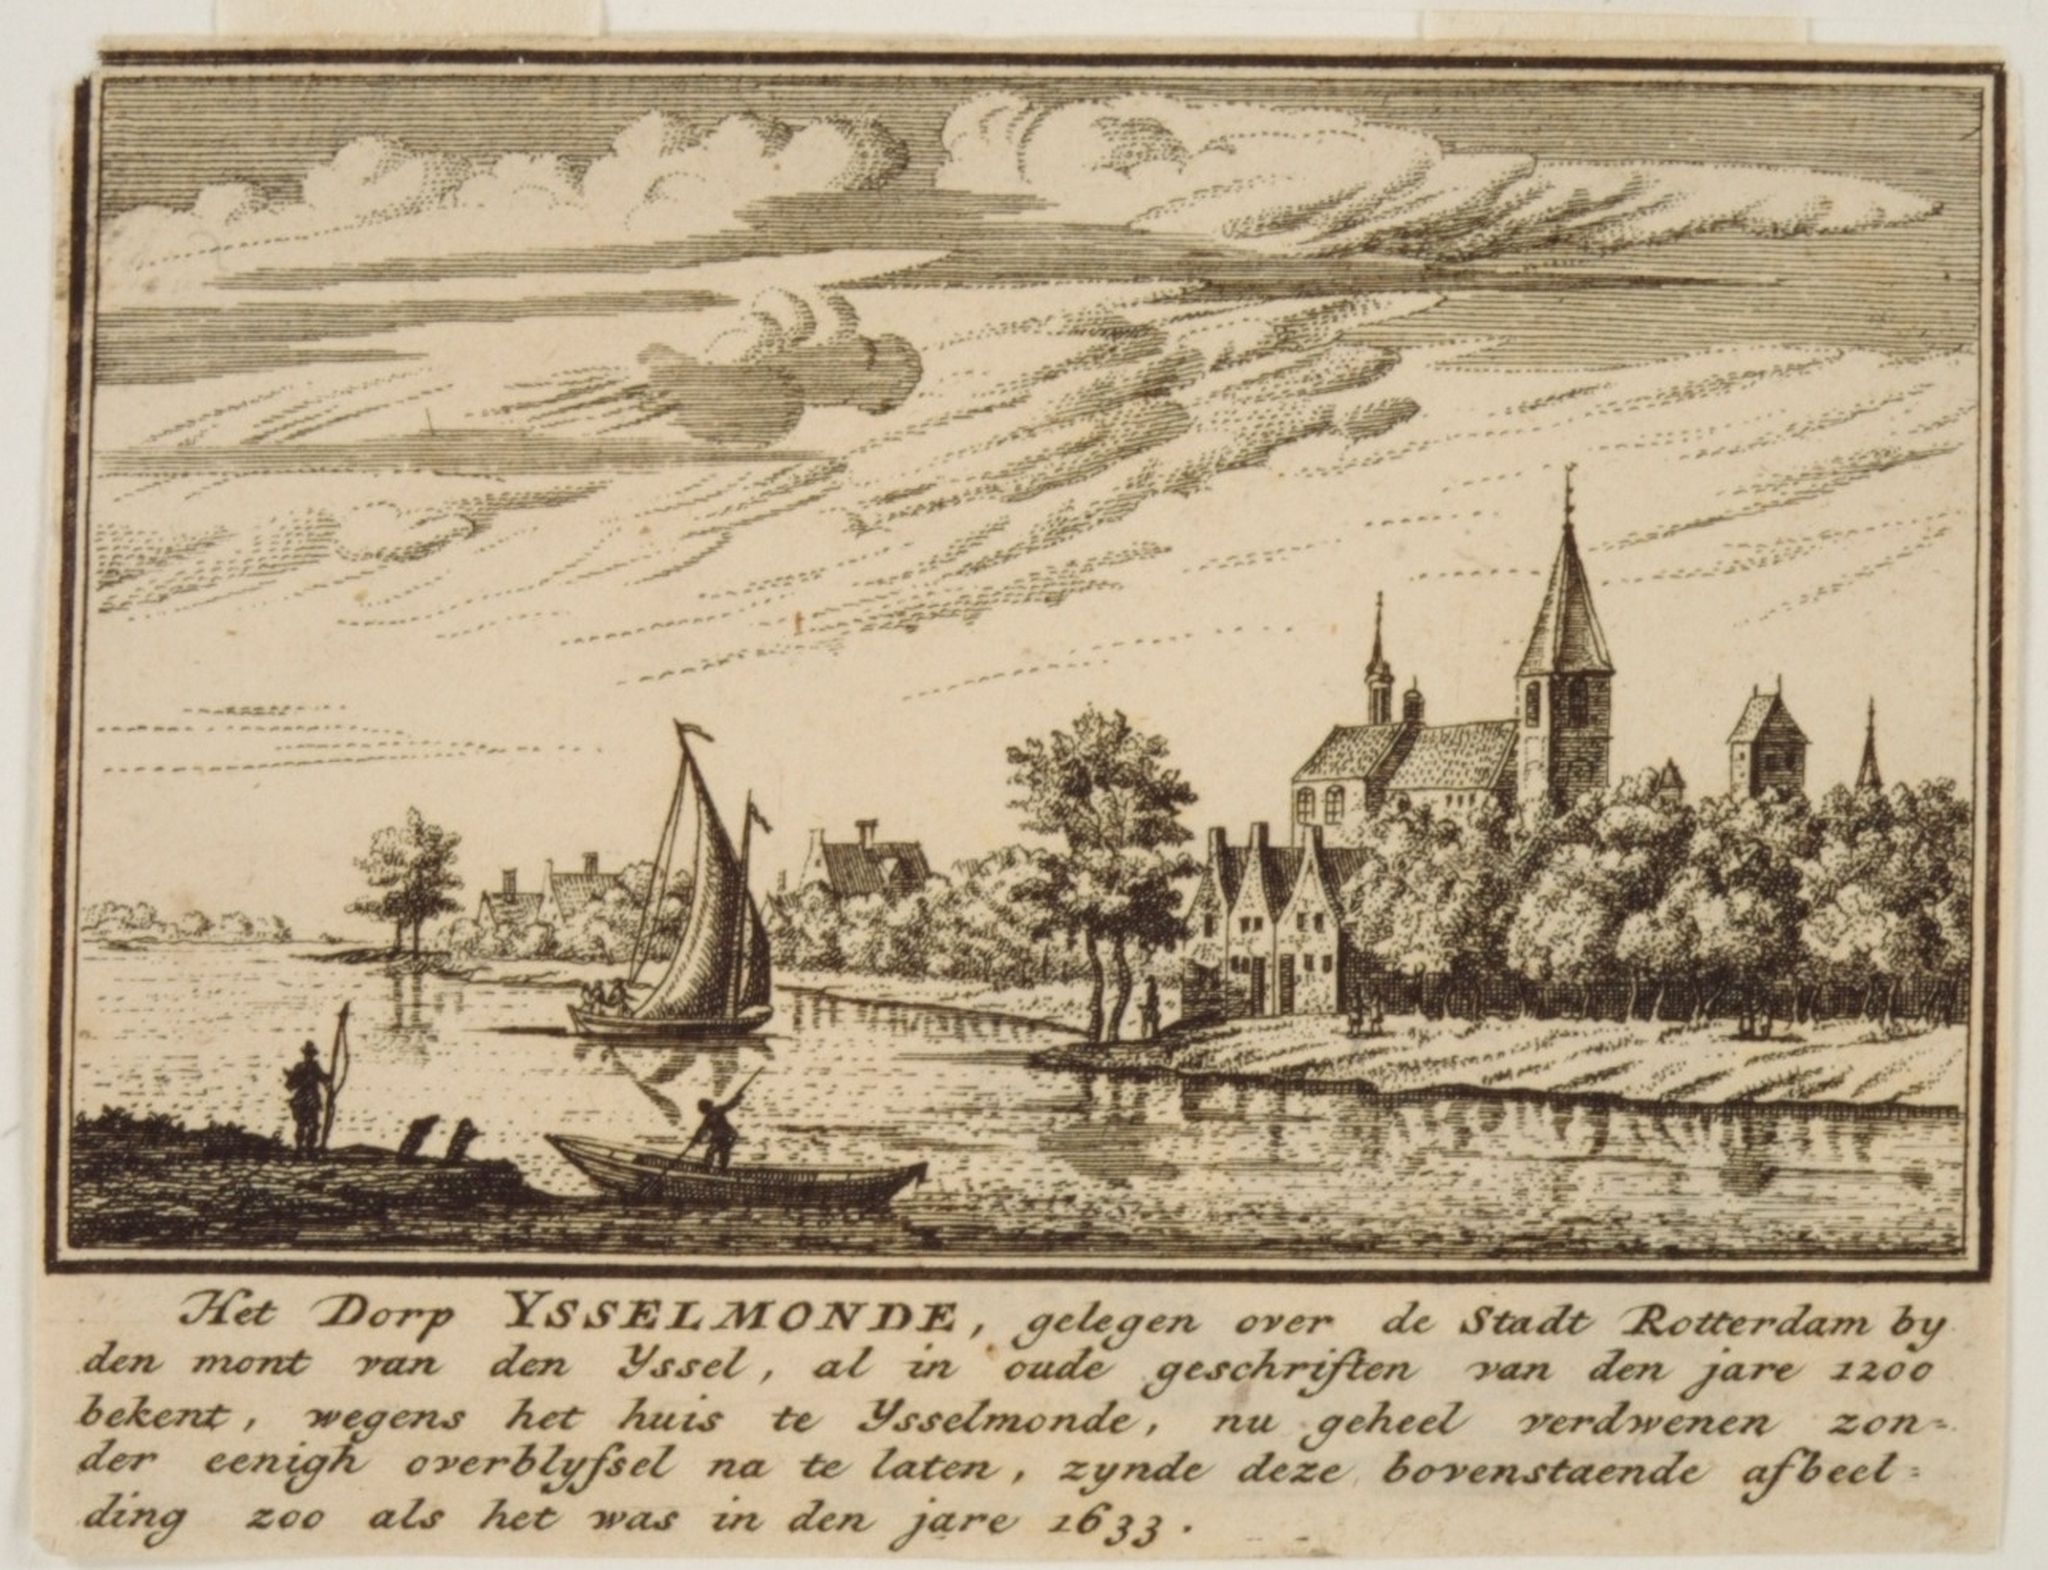 Het Dorp YSSELMONDE, gelegen over de Stadt Rotterdam by
den mont van den Yssel, al in oude geschriften van den jare 1200
bekent, wegens het huis te Ysselmonde, nu geheel verdwenen zon=
der eenigh overblyfsel na te laten, zynde deze bovenstaende afbeel=
ding zoo als het was in den jare 1633.